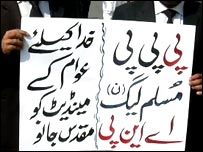 پی پی پی
مسلم لیگ (ن)
اے این پی
خدا کیلئے
عوام کے
مینڈیٹ کو
مقدس جانو